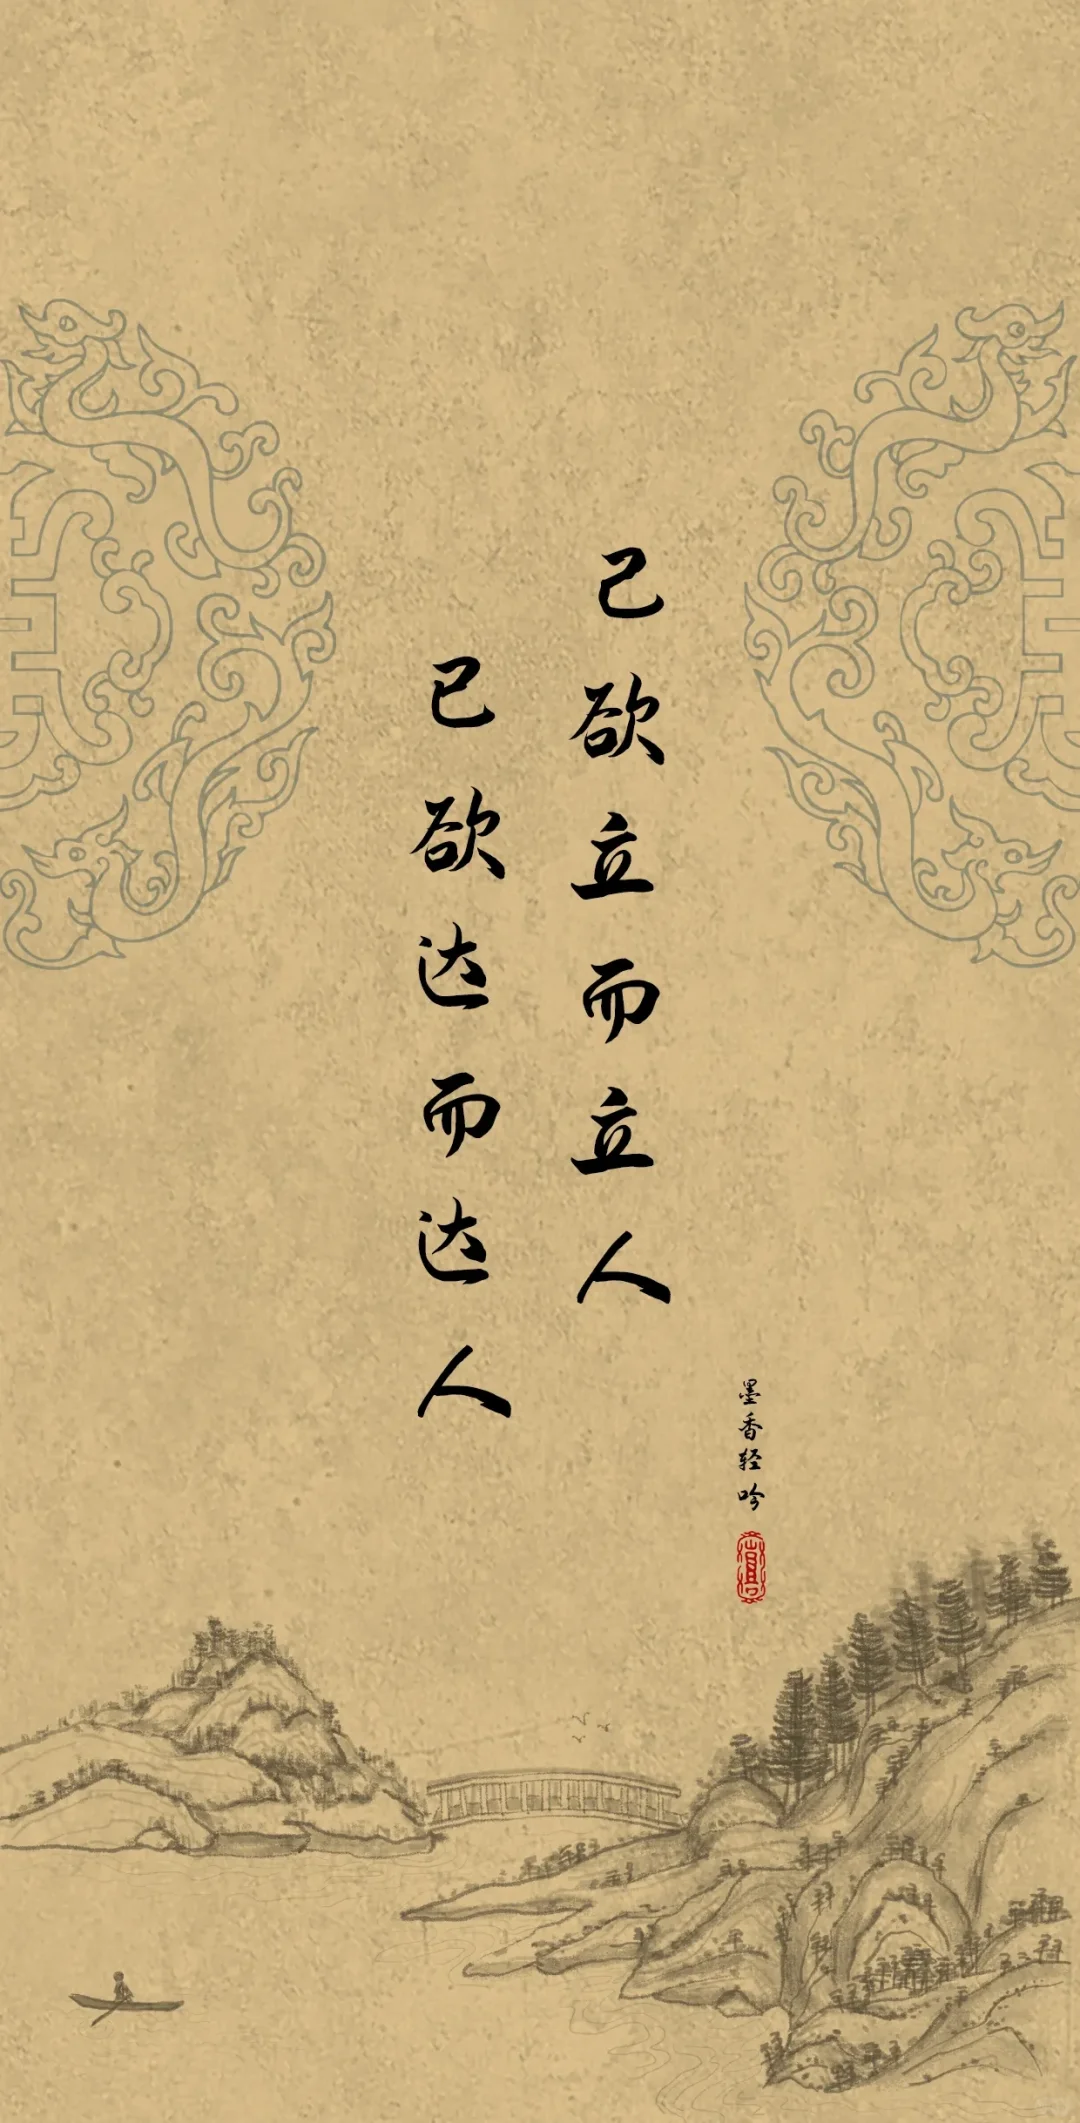 己欲立而立人
已欲达而达人
墨香轻吟